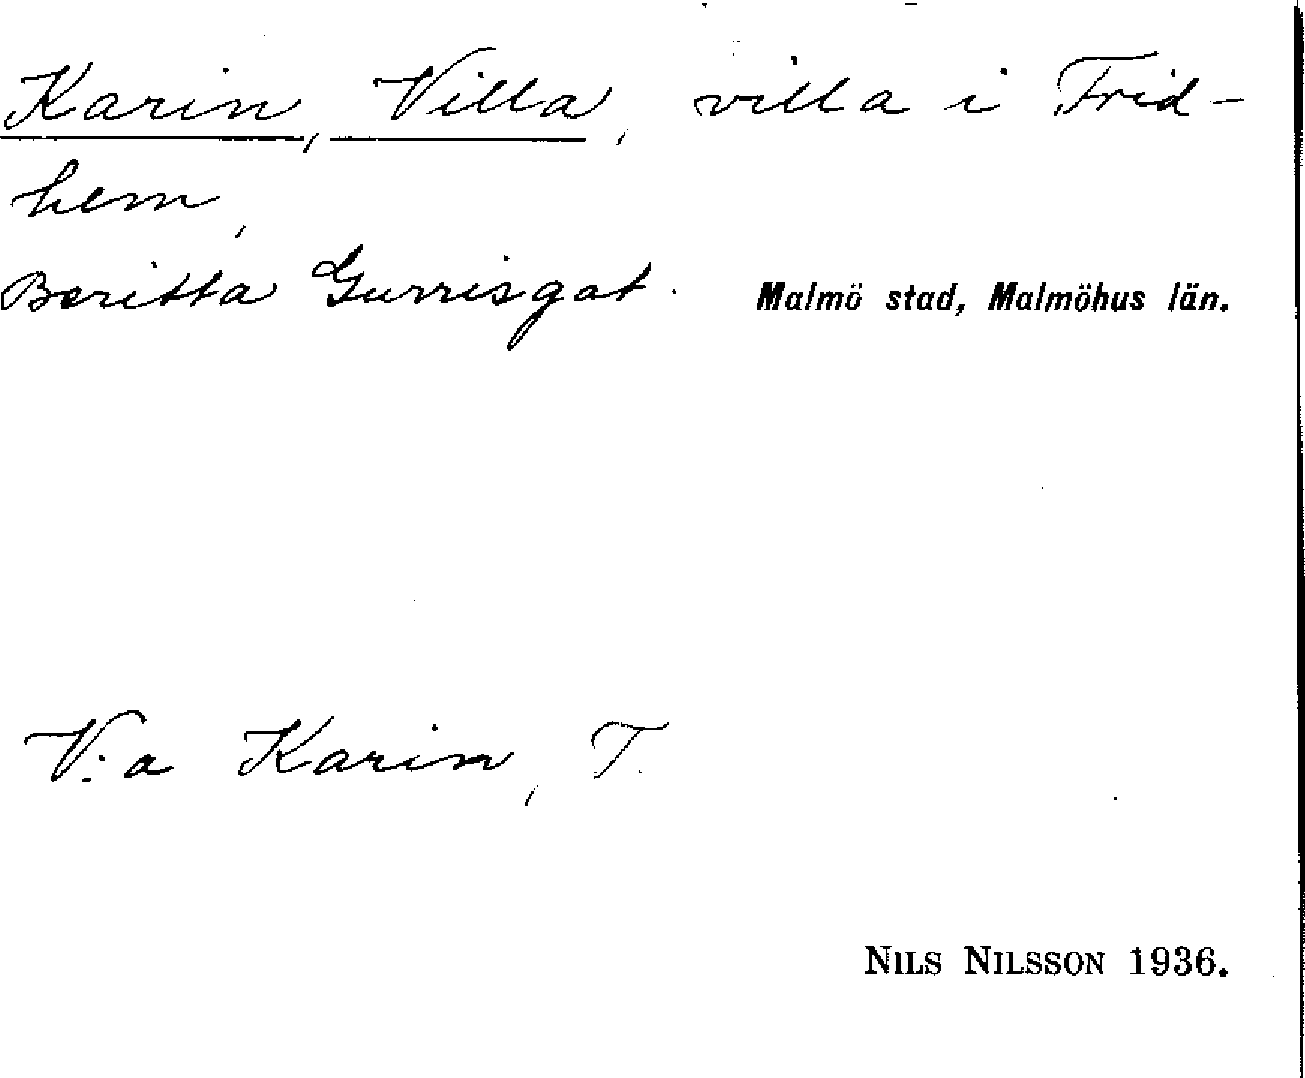 Karin, Villa, villa i Frid-
hem,
Beritta Gurrisgat. Malmö stad, Malmöhus län.
V:a Karin, T.
NILS NILSSON 1936.